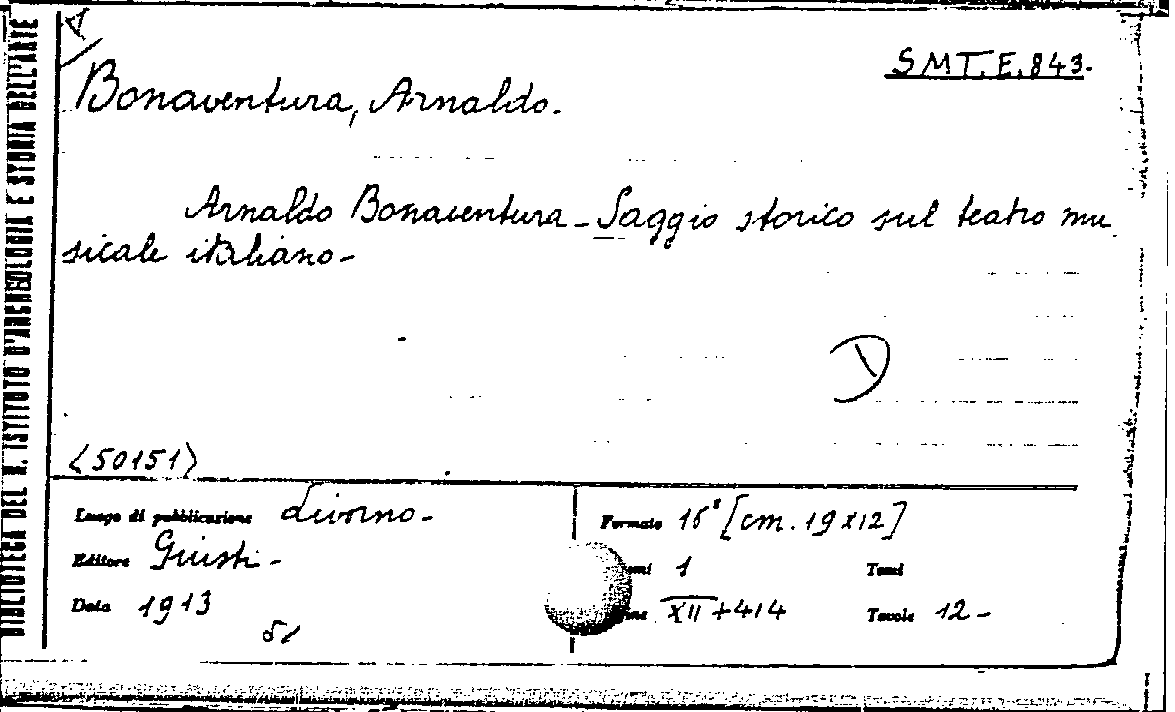 BIBLIOTECA DEL R. ISTITUTO D'ARCHEOLOGIA E STORIA DELL'ARTE
A
SMT.E.843.
Bonaventura, Arnaldo.
Arnaldo Bonaventura - Saggio storico sul teatro mu
sicale italiano -
<50151>
Luogo di pubblicazione Livorno -
Editore Giusti -
Data 1913
Formato 16° [cm. 19x12]
1 Tomi
XII+414 Tavole 12 -